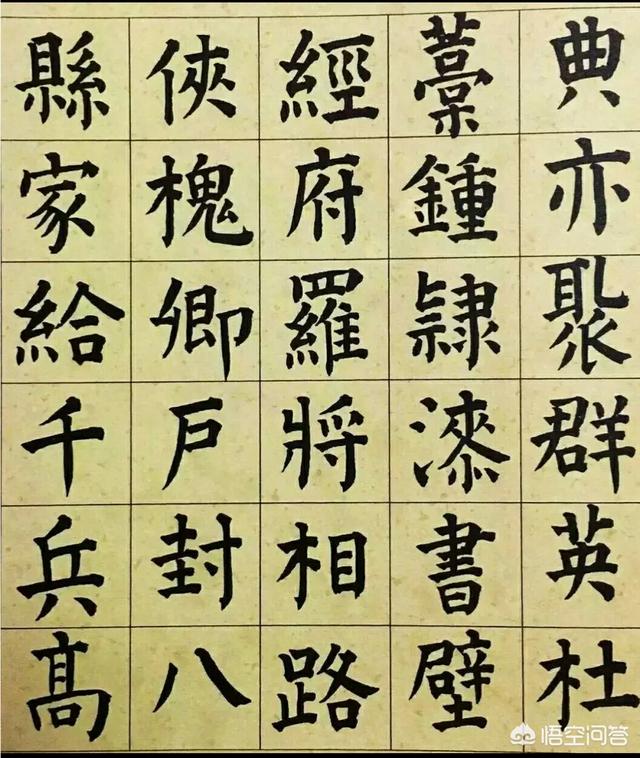 典亦聚群英杜
藁鍾隸漆書壁
經府羅將相路
俠槐卿戶封八
縣家給千兵高
悟空问答